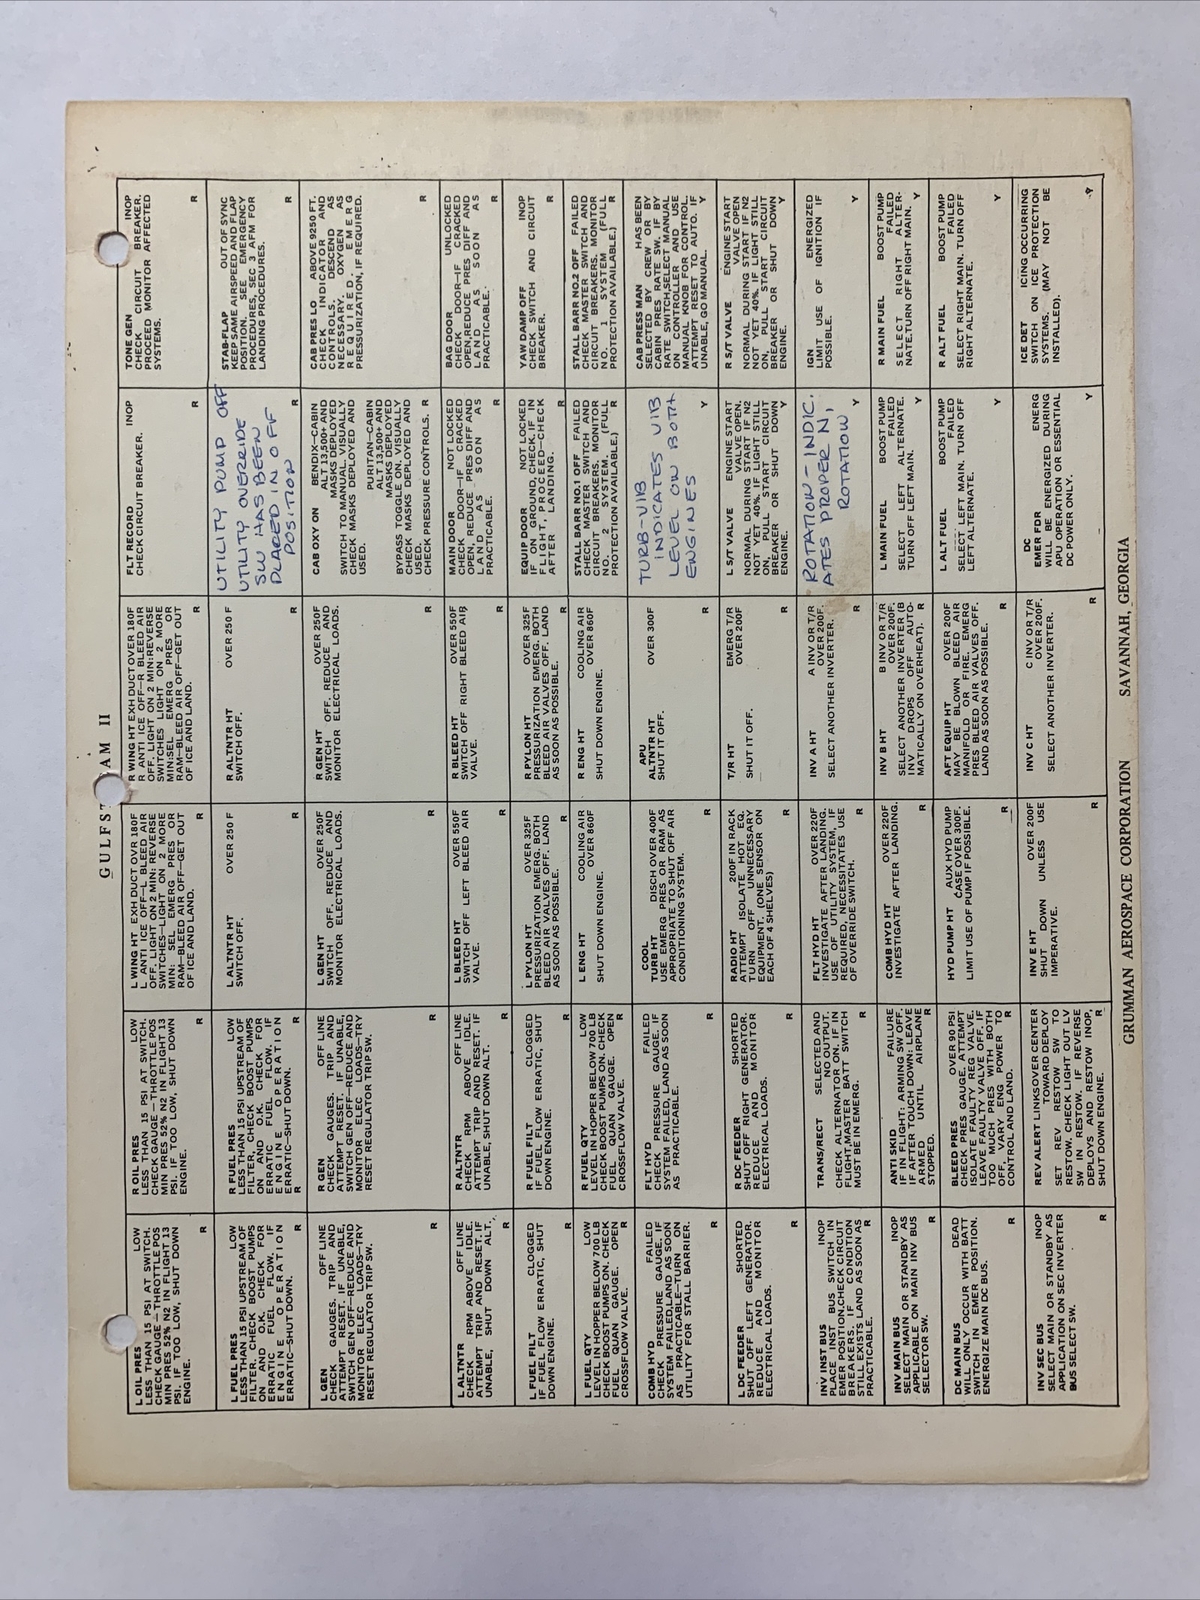 GULFST AM II
L OIL PRES LOW
LESS THAN 15 PSI AT SWITCH.
CHECK GAUGE—THROTTLE POS
MIN PRES 52% N2 IN FLIGHT 13
PSI. IF TOO LOW, SHUT DOWN
ENGINE.
R
R OIL PRES LOW
LESS THAN 15 PSI AT SWITCH.
CHECK GAUGE—THROTTLE POS
MIN PRES 52% N2 IN FLIGHT 13
PSI. IF TOO LOW, SHUT DOWN
ENGINE.
R
L WING HT EXH DUCT OVR 180F
L ANTI ICE OFF—L BLEED AIR
OFF. LIGHT ON 2 MIN: REVERSE
SWITCHES—LIGHT ON 2 MORE
MIN: SEL EMERG PRES OR
RAM—BLEED AIR OFF—GET OUT
OF ICE AND LAND.
R
R WING HT EXH DUCT OVER 180F
R ANTI ICE OFF—R BLEED AIR
OFF. LIGHT ON 2 MIN:REVERSE
SWITCHES LIGHT ON 2 MORE
MIN:SEL EMERG PRES OR
RAM—BLEED AIR OFF—GET OUT
OF ICE AND LAND.
R
FLT RECORD INOP
CHECK CIRCUIT BREAKER.
R
TONE GEN INOP
CHECK CIRCUIT BREAKER.
PROCEED MONITOR AFFECTED
SYSTEMS.
R
L FUEL PRES LOW
LESS THAN 15 PSI UPSTREAM OF
FILTER, CHECK BOOST PUMPS
ON AND O.K. CHECK FOR
ERRATIC FUEL FLOW. IF
ENGINE OPERATION
ERRATIC—SHUT DOWN.
R
R FUEL PRES LOW
LESS THAN 15 PSI UPSTREAM OF
FILTER, CHECK BOOST PUMPS
ON AND O.K. CHECK FOR
ERRATIC FUEL FLOW. IF
ENGINE OPERATION
ERRATIC—SHUT DOWN.
R
L ALTNTR HT OVER 250 F
SWITCH OFF.
R
R ALTNTR HT OVER 250 F
SWITCH OFF.
R
UTILITY PUMP OFF
UTILITY OVERRIDE
SW HAS BEEN
PLACED IN OFF
POSITION
R
STAB-FLAP OUT OF SYNC
KEEP SAME AIRSPEED AND FLAP
POSITION. SEE EMERGENCY
PROCEDURES, SEC 3 AFM FOR
LANDING PROCEDURES.
R
L GEN OFF LINE
CHECK GAUGES. TRIP AND
ATTEMPT RESET. IF UNABLE,
SWITCH GEN OFF—REDUCE AND
MONITOR ELEC LOADS—TRY
RESET REGULATOR TRIP SW.
R
R GEN OFF LINE
CHECK GAUGES. TRIP AND
ATTEMPT RESET. IF UNABLE,
SWITCH GEN OFF—REDUCE AND
MONITOR ELEC LOADS—TRY
RESET REGULATOR TRIP SW.
R
L GEN HT OVER 250F
SWITCH OFF. REDUCE AND
MONITOR ELECTRICAL LOADS.
R
R GEN HT OVER 250F
SWITCH OFF. REDUCE AND
MONITOR ELECTRICAL LOADS.
R
CAB OXY ON BENDIX—CABIN
ALT 13,500+ AND
MASKS DEPLOYED
SWITCH TO MANUAL. VISUALLY
CHECK MASKS DEPLOYED AND
USED.
PURITAN—CABIN
ALT 13,500+ AND
MASKS DEPLOYED
BYPASS TOGGLE ON, VISUALLY
CHECK MASKS DEPLOYED AND
USED.
CHECK PRESSURE CONTROLS. R
CAB PRES LO ABOVE 9250 FT.
CHECK INDICATOR AND
CONTROLS. DESCEND AS
NECESSARY. OXYGEN AS
REQUIRED. EMERG
PRESSURIZATION, IF REQUIRED.
R
L ALTNTR OFF LINE
CHECK RPM ABOVE IDLE.
ATTEMPT TRIP AND RESET. IF
UNABLE, SHUT DOWN ALT.
R
R ALTNTR OFF LINE
CHECK RPM ABOVE IDLE.
ATTEMPT TRIP AND RESET. IF
UNABLE, SHUT DOWN ALT.
R
L BLEED HT OVER 550F
SWITCH OFF LEFT BLEED AIR
VALVE.
R
R BLEED HT OVER 550F
SWITCH OFF RIGHT BLEED AIR
VALVE.
R
MAIN DOOR NOT LOCKED
CHECK DOOR—IF CRACKED
OPEN, REDUCE PRES DIFF AND
LAND AS SOON AS
PRACTICABLE.
R
BAG DOOR UNLOCKED
CHECK DOOR—IF CRACKED
OPEN,REDUCE PRES DIFF AND
LAND AS SOON AS
PRACTICABLE.
R
L FUEL FILT CLOGGED
IF FUEL FLOW ERRATIC, SHUT
DOWN ENGINE.
R
R FUEL FILT CLOGGED
IF FUEL FLOW ERRATIC, SHUT
DOWN ENGINE.
R
L PYLON HT OVER 325F
PRESSURIZATION EMERG. BOTH
BLEED AIR VALVES OFF. LAND
AS SOON AS POSSIBLE.
R
R PYLON HT OVER 325F
PRESSURIZATION EMERG. BOTH
BLEED AIR VALVES OFF. LAND
AS SOON AS POSSIBLE.
R
EQUIP DOOR NOT LOCKED
IF ON GROUND, CHECK, IF IN
FLIGHT, PROCEED—CHECK
AFTER LANDING.
R
YAW DAMP OFF
CHECK SWITCH AND CIRCUIT
BREAKER.
R
L FUEL QTY LOW
LEVEL IN HOPPER BELOW 700 LB
CHECK BOOST PUMPS ON. CHECK
FUEL QUAN GAUGE. OPEN
CROSSFLOW VALVE. R
R FUEL QTY LOW
LEVEL IN HOPPER BELOW 700 LB
CHECK BOOST PUMPS ON. CHECK
FUEL QUAN GAUGE. OPEN
CROSSFLOW VALVE. R
L ENG HT COOLING AIR
OVER 860F
SHUT DOWN ENGINE.
R
R ENG HT COOLING AIR
OVER 860F
SHUT DOWN ENGINE.
R
STALL BARR NO.1 OFF FAILED
CHECK MASTER SWITCH AND
CIRCUIT BREAKERS. MONITOR
NO. 2 SYSTEM. (FULL
PROTECTION AVAILABLE.) R
STALL BARR NO.2 OFF FAILED
CHECK MASTER SWITCH AND
CIRCUIT BREAKERS. MONITOR
NO. 1 SYSTEM (FULL
PROTECTION AVAILABLE.) R
COMB HYD FAILED
CHECK PRESSURE GAUGE. IF
SYSTEM FAILED,LAND AS SOON
AS PRACTICABLE—TURN ON
UTILITY FOR STALL BARRIER.
R
FLT HYD FAILED
CHECK PRESSURE GAUGE. IF
SYSTEM FAILED, LAND AS SOON
AS PRACTICABLE.
R
COOL
TURB HT DISCH OVER 400F
USE EMERG PRES OR RAM AS
APPROPRIATE TO SHUT OFF AIR
CONDITIONING SYSTEM.
R
APU
ALTNTR HT OVER 300F
SHUT IT OFF.
R
TURB-VIB
INDICATES VIB
LEVEL ON BOTH
ENGINES
Y
CAB PRESS MAN HAS BEEN
SELECTED BY CREW OR BY
CABIN PRES RATE SW. IF BY
RATE SWITCH,SELECT MANUAL
ON CONTROLLER AND USE
MANUAL KNOB FOR CONTROL
ATTEMPT RESET TO AUTO. IF
UNABLE, GO MANUAL. Y
L DC FEEDER SHORTED
SHUT OFF LEFT GENERATOR.
REDUCE AND MONITOR
ELECTRICAL LOADS.
R
R DC FEEDER SHORTED
SHUT OFF RIGHT GENERATOR.
REDUCE AND MONITOR
ELECTRICAL LOADS.
R
RADIO HT 200F IN RACK
ATTEMPT ISOLATE HOT EQ.
TURN OFF UNNECESSARY
EQUIPMENT. (ONE SENSOR ON
EACH OF 4 SHELVES)
R
T/R HT EMERG T/R
OVER 200F
SHUT IT OFF.
R
L S/T VALVE ENGINE START
VALVE OPEN.
NORMAL DURING START IF N2
NOT YET 40%. IF LIGHT STILL
ON, PULL START CIRCUIT
BREAKER OR SHUT DOWN
ENGINE.
Y
R S/T VALVE ENGINE START
VALVE OPEN
NORMAL DURING START IF N2
NOT YET 40%. IF LIGHT STILL
ON, PULL START CIRCUIT
BREAKER OR SHUT DOWN
ENGINE.
Y
INV INST BUS INOP
PLACE INST BUS SWITCH IN
EMER POSITION.CHECK CIRCUIT
BREAKERS. IF CONDITION
STILL EXISTS LAND AS SOON AS
PRACTICABLE.
R
TRANS/RECT SELECTED AND
NO OUTPUT.
CHECK ALTERNATOR ON. IF IN
FLIGHT,MASTER BATT SWITCH
MUST BE IN EMERG.
R
FLT HYD HT OVER 220F
INVESTIGATE AFTER LANDING.
USE OF UTILITY SYSTEM, IF
REQUIRED, NECESSITATES USE
OF OVERRIDE SWITCH.
R
INV A HT A INV OR T/R
OVER 200F.
SELECT ANOTHER INVERTER.
R
ROTATION-INDIC.
ATES PROPER N1
ROTATION
Y
IGN ENERGIZED
LIMIT USE OF IGNITION IF
POSSIBLE.
Y
INV MAIN BUS INOP
SELECT MAIN OR STANDBY AS
APPLICABLE ON MAIN INV BUS
SELECTOR SW.
R
ANTI SKID FAILURE
IF IN FLIGHT: ARMING SW OFF.
IF AFTER TOUCH DOWN: LEAVE
ARMED UNTIL AIRPLANE
STOPPED.
R
COMB HYD HT OVER 220F
INVESTIGATE AFTER LANDING.
R
INV B HT B INV OR T/R
OVER 200F.
SELECT ANOTHER INVERTER (B
INV DROPS OFF AUTO-
MATICALLY ON OVERHEAT). R
L MAIN FUEL BOOST PUMP
FAILED
SELECT LEFT ALTERNATE.
TURN OFF LEFT MAIN.
Y
R MAIN FUEL BOOST PUMP
FAILED
SELECT RIGHT ALTER-
NATE.TURN OFF RIGHT MAIN.
Y
DC MAIN BUS DEAD
WILL ONLY OCCUR WITH BATT
SWITCH IN EMER POSITION.
ENERGIZE MAIN DC BUS.
R
BLEED PRES OVER 90 PSI
CHECK PRES GAUGE. ATTEMPT
ISOLATE FAULTY REG VALVE.
LEAVE FAULTY VALVE OFF. IF
TOO MUCH PRES WITH BOTH
OFF, VARY ENG POWER TO
CONTROL AND LAND.
R
HYD PUMP HT AUX HYD PUMP
CASE OVER 300F.
LIMIT USE OF PUMP IF POSSIBLE.
R
AFT EQUIP HT OVER 200F
MAY BE BLOWN BLEED AIR
MANIFOLD OR FIRE. EMERG
PRES BLEED AIR VALVES OFF.
LAND AS SOON AS POSSIBLE.
R
L ALT FUEL BOOST PUMP
FAILED
SELECT LEFT MAIN. TURN OFF
LEFT ALTERNATE.
Y
R ALT FUEL BOOST PUMP
FAILED
SELECT RIGHT MAIN. TURN OFF
RIGHT ALTERNATE.
Y
INV SEC BUS INOP
SELECT MAIN OR STANDBY AS
APPLICATION ON SEC INVERTER
BUS SELECT SW.
R
REV ALERT LINKS OVER CENTER
TOWARD DEPLOY
SET REV RESTOW SW TO
RESTOW. CHECK LIGHT OUT LV
SW IN RESTOW. IF REVERSE
DEPLOYS AND RESTOW INOP,
SHUT DOWN ENGINE. R
INV E HT OVER 200F
SHUT DOWN UNLESS USE
IMPERATIVE.
R
INV C HT C INV OR T/R
OVER 200F.
SELECT ANOTHER INVERTER.
R
DC
EMER FDR ENERG
WILL BE ENERGIZED DURING
APU OPERATION OR ESSENTIAL
DC POWER ONLY.
Y
ICE DET ICING OCCURRING
SWITCH ON ICE PROTECTION
SYSTEMS. (MAY NOT BE
INSTALLED).
Y
GRUMMAN AEROSPACE CORPORATION SAVANNAH, GEORGIA